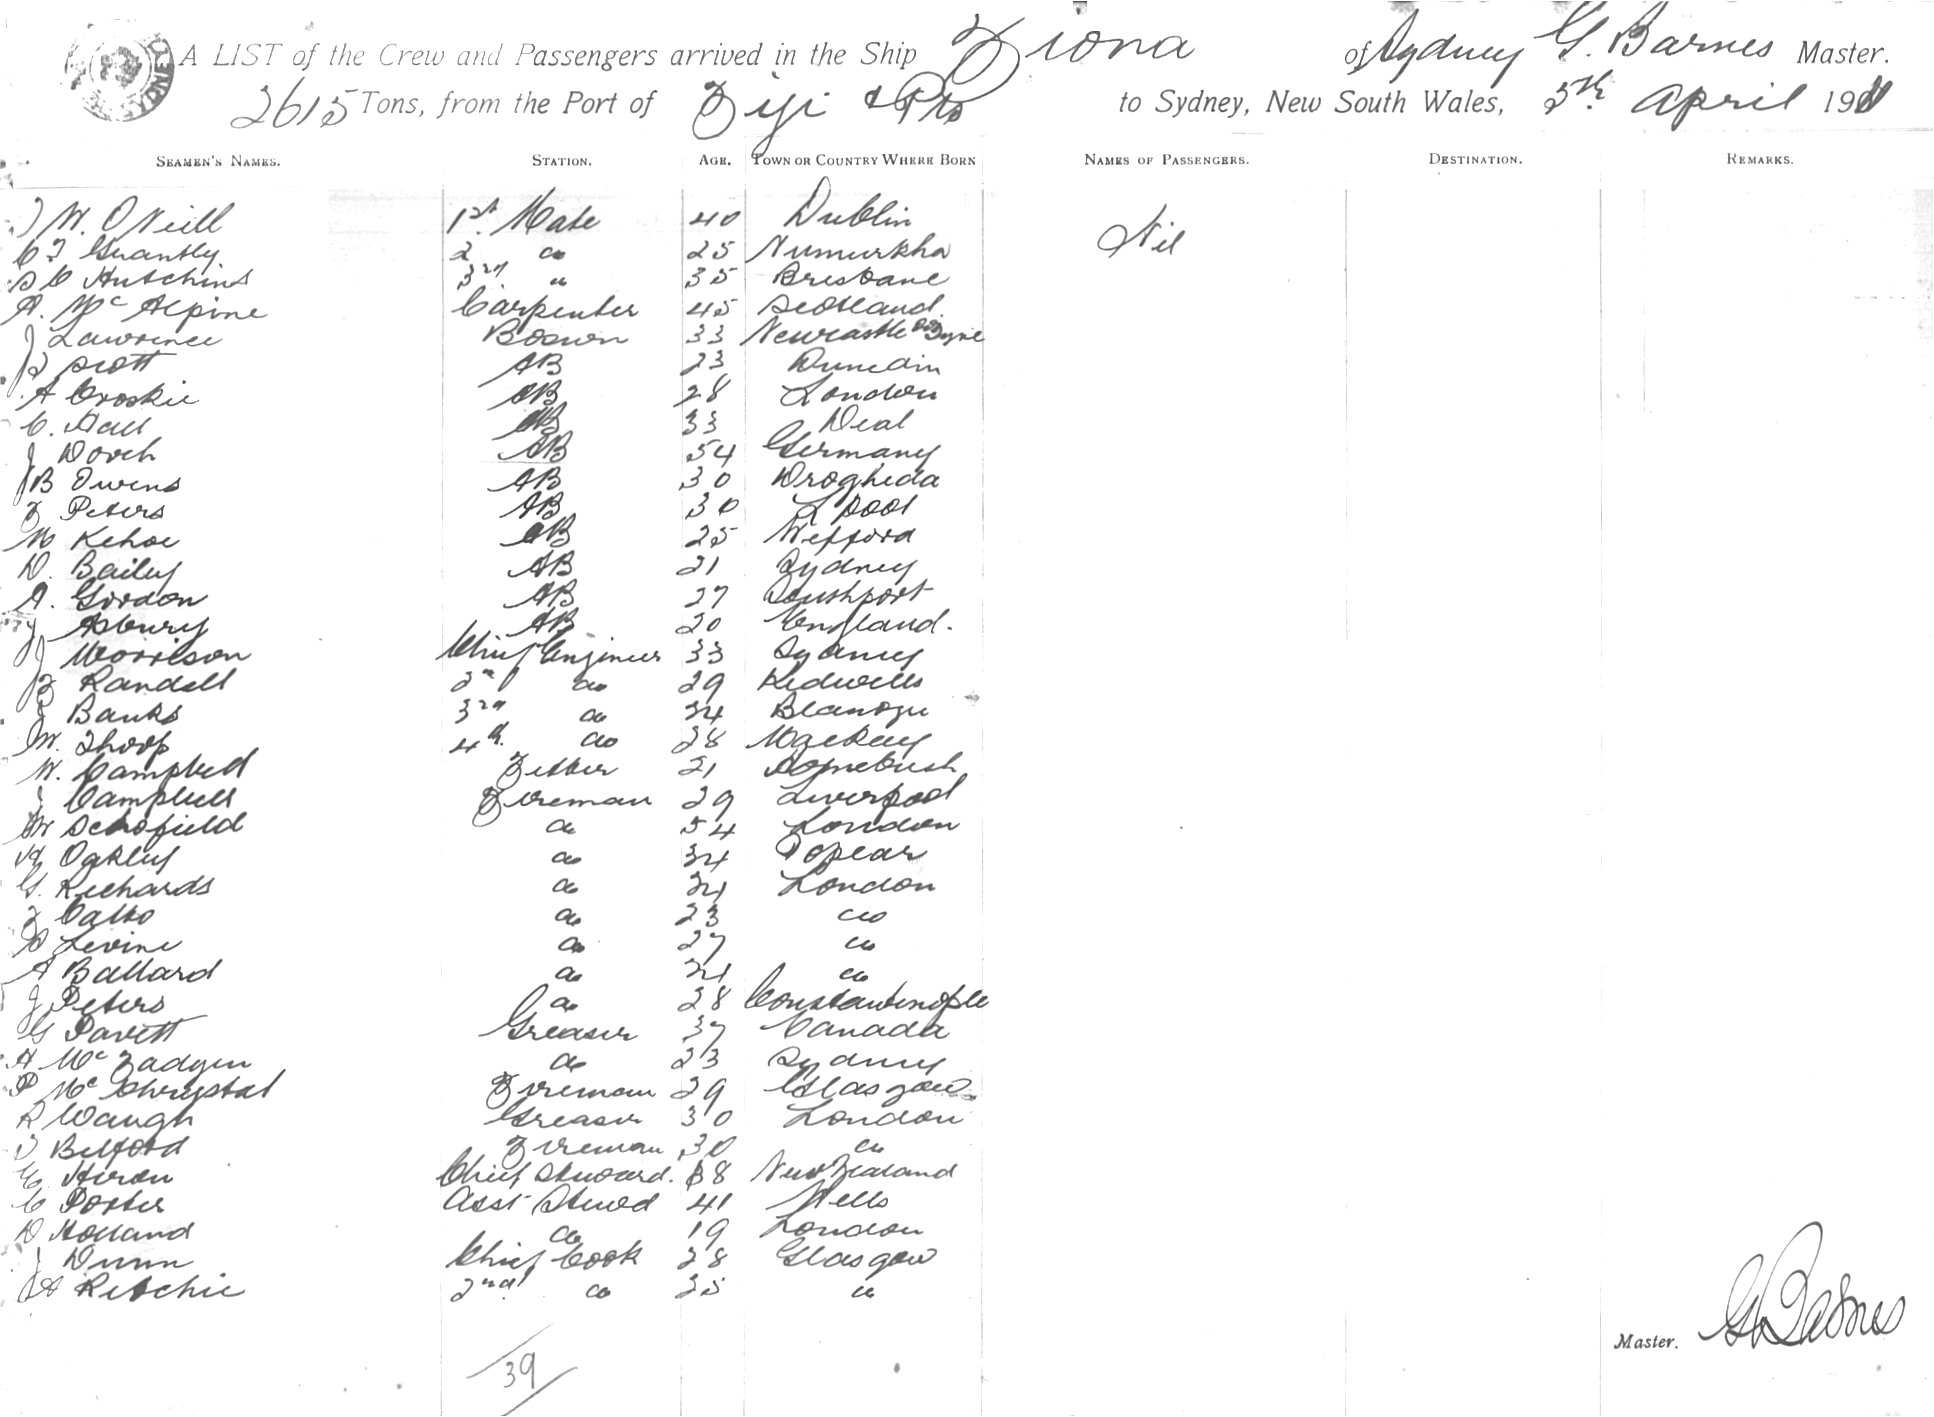 A LIST of the Crew and Passengers arrived in the Ship Fiona of Sydney G. Barnes Master.
2615 Tons, from the Port of Fiji & Pts to Sydney, New South Wales, 5th April 1911
SEAMEN'S NAMES. STATION. AGE. TOWN OR COUNTRY WHERE BORN NAMES OF PASSENGERS. DESTINATION. REMARKS.
J W. O'Neill 1st Mate 40 Dublin Nil
C F Grantly 2 do 25 Numurkha
S C Hutchins 3rd " 35 Brisbane
A. McAlpine Carpenter 45 Scotland.
J Lawrence Boswn 33 Newcastle on Tyne
J Scott AB 23 Dunedin
A Croskie AB 28 London
C. Hall AB 33 Deal
J Dorch AB 54 Germany
J B Owens AB 30 Drogheda
F Peters AB 30 L'pool
M Kehoe AB 25 Wexford
D. Bailey AB 21 Sydney
A. Gordon AB 27 Southport
J Asbury AB 20 England.
J Morrison Chief Engineer 33 Sydney
F Randell 2nd do 29 Kidwells
Banks 3rd do 34
W. Thorp 4th do 28 Mackay
W. Campbell Fitter 21 Homebush
J Campbell Fireman 29 Liverpool
W Schofield do 54 London
H Oakley do 34 Poplar
G. Richards do 31 London
F Catto do 23 do
D Levine do 27 do
A Ballard do 31 do
J Peters do 28 Constantinople
G Pavett Greaser 37 Canada
A McFadyen do 23 Sydney
P McChrystal Fireman 29 Glasgow
R Waugh Greaser 30 London
J Belford Fireman 30 do
C Heron Chief Steward. 38 New Zealand
C Porter Asst Stewd 41 Wells
D Holland do 19 London
J Dunn Chief Cook 28 Glasgow
A Ritchie 2nd do 35 do
39
Master. G Barnes